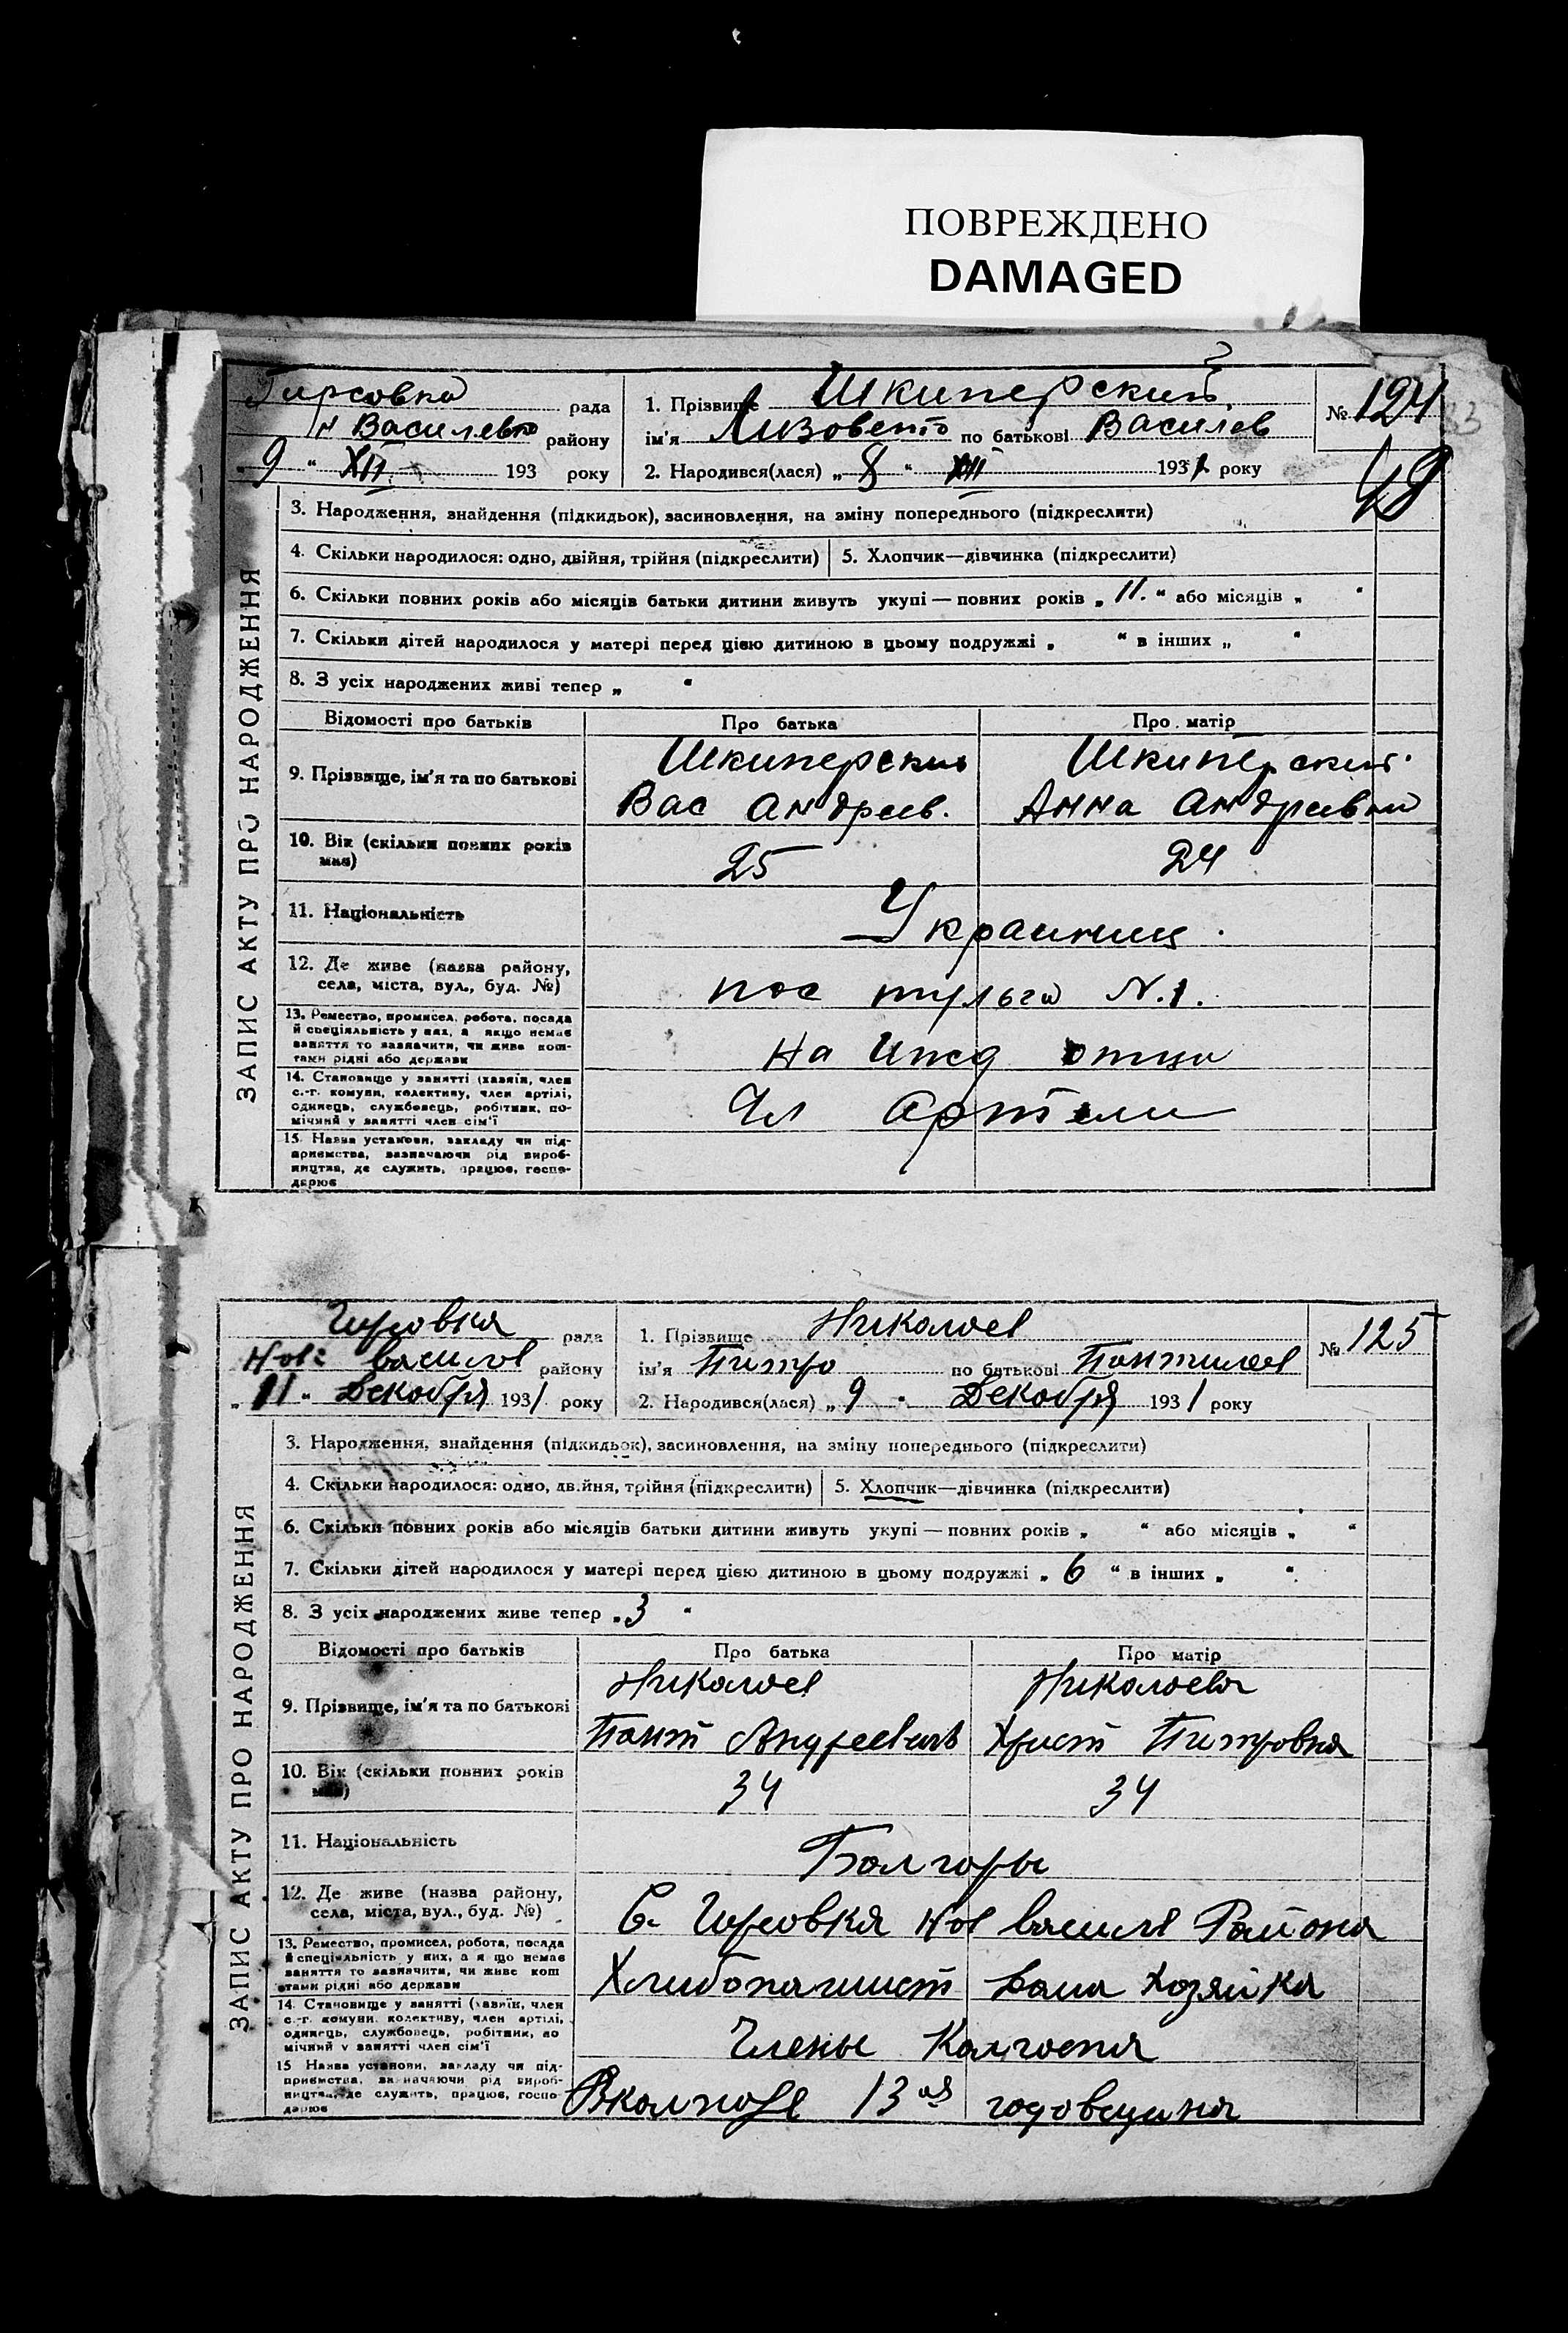 ПОВРЕЖДЕНО
DAMAGED
Гирсовка рада
Н Василевко району
„9“ XII 193 року
1. Прізвище Шкиперский
ім'я Лизовето по батькові Василев
2. Народився(лася) „8“ XII 1931 року
№ 124
49
ЗАПИС АКТУ ПРО НАРОДЖЕННЯ
3. Народження, знайдення (підкидьок), засиновлення, на зміну попереднього (підкреслити)
4. Скільки народилося: одно, двійня, трійня (підкреслити) 5. Хлопчик—дівчинка (підкреслити)
6. Скільки повних років або місяців батьки дитини живуть укупі — повних років „11.“ або місяців „ “
7. Скільки дітей народилося у матері перед цією дитиною в цьому подружжі „ “ в інших „ “
8. З усіх народжених живі тепер „ “
Відомості про батьків Про батька Про матір
9. Прізвище, ім'я та по батькові
Шкиперский Шкиперский
Вас Андреев. Анна Андреевна
10. Вік (скільки повних років має) 25 24
11. Національність Украинец
12. Де живе (назва району, села, міста, вул., буд. №)
пос N.1.
13. Ремество, промисел, робота, посада й спеціяльність у них, а якщо немає заняття то зазначити, чи живе коштами рідні або держави
На Ижд отца
14. Становище у занятті (хазяїн, член с.-г. комуни, колективу, член артілі, одинець, службовець, робітник, помічний у занятті член сім'ї
Чл Артели
15. Назва установи, закладу чи підприємства, зазначаючи рід виробництва, де служить, працює, господарює
Гирсовка рада
Нов: василов району
„11“ Декобря 1931 року
1. Прізвище Николоев
ім'я Питро по батькові Понтилеев
2. Народився(лася) „9“ Декобря 1931 року
№ 125
ЗАПИС АКТУ ПРО НАРОДЖЕННЯ
3. Народження, знайдення (підкидьок), засиновлення, на зміну попереднього (підкреслити)
4. Скільки народилося: одно, двійня, трійня (підкреслити) 5. Хлопчик—дівчинка (підкреслити)
6. Скільки повних років або місяців батьки дитини живуть укупі — повних років „ “ або місяців „ “
7. Скільки дітей народилося у матері перед цією дитиною в цьому подружжі „6“ в інших „ “
8. З усіх народжених живе тепер „3“
Відомості про батьків Про батька Про матір
9. Прізвище, ім'я та по батькові
Николоев Николоева
Понт Андреевич Христ Питровна
10. Вік (скільки повних років має) 34 34
11. Національність Болгоры
12. Де живе (назва району, села, міста, вул., буд. №)
С. Гирсовка Нов василв Района
13. Ремество, промисел, робота, посада й спеціяльність у них, а якщо немає заняття то зазначити, чи живе коштами рідні або держави
Хлибопашист Дома хозяйка
14. Становище у занятті (хазяїн, член с.-г. комуни, колективу, член артілі, одинець, службовець, робітник, помічний у занятті член сім'ї
Члены Колгоспа
15 Назва установи, закладу чи підприємства, зазначаючи рід виробництва, де служить, працює, господарює
13ая годовщина